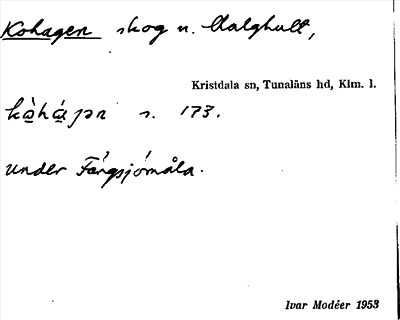 Kohagen skog u. Malghult,
Kristdala sn, Tunaläns hd, Klm. l.
s. 173.
under Färgsjömåla.
Ivar Modéer 1953